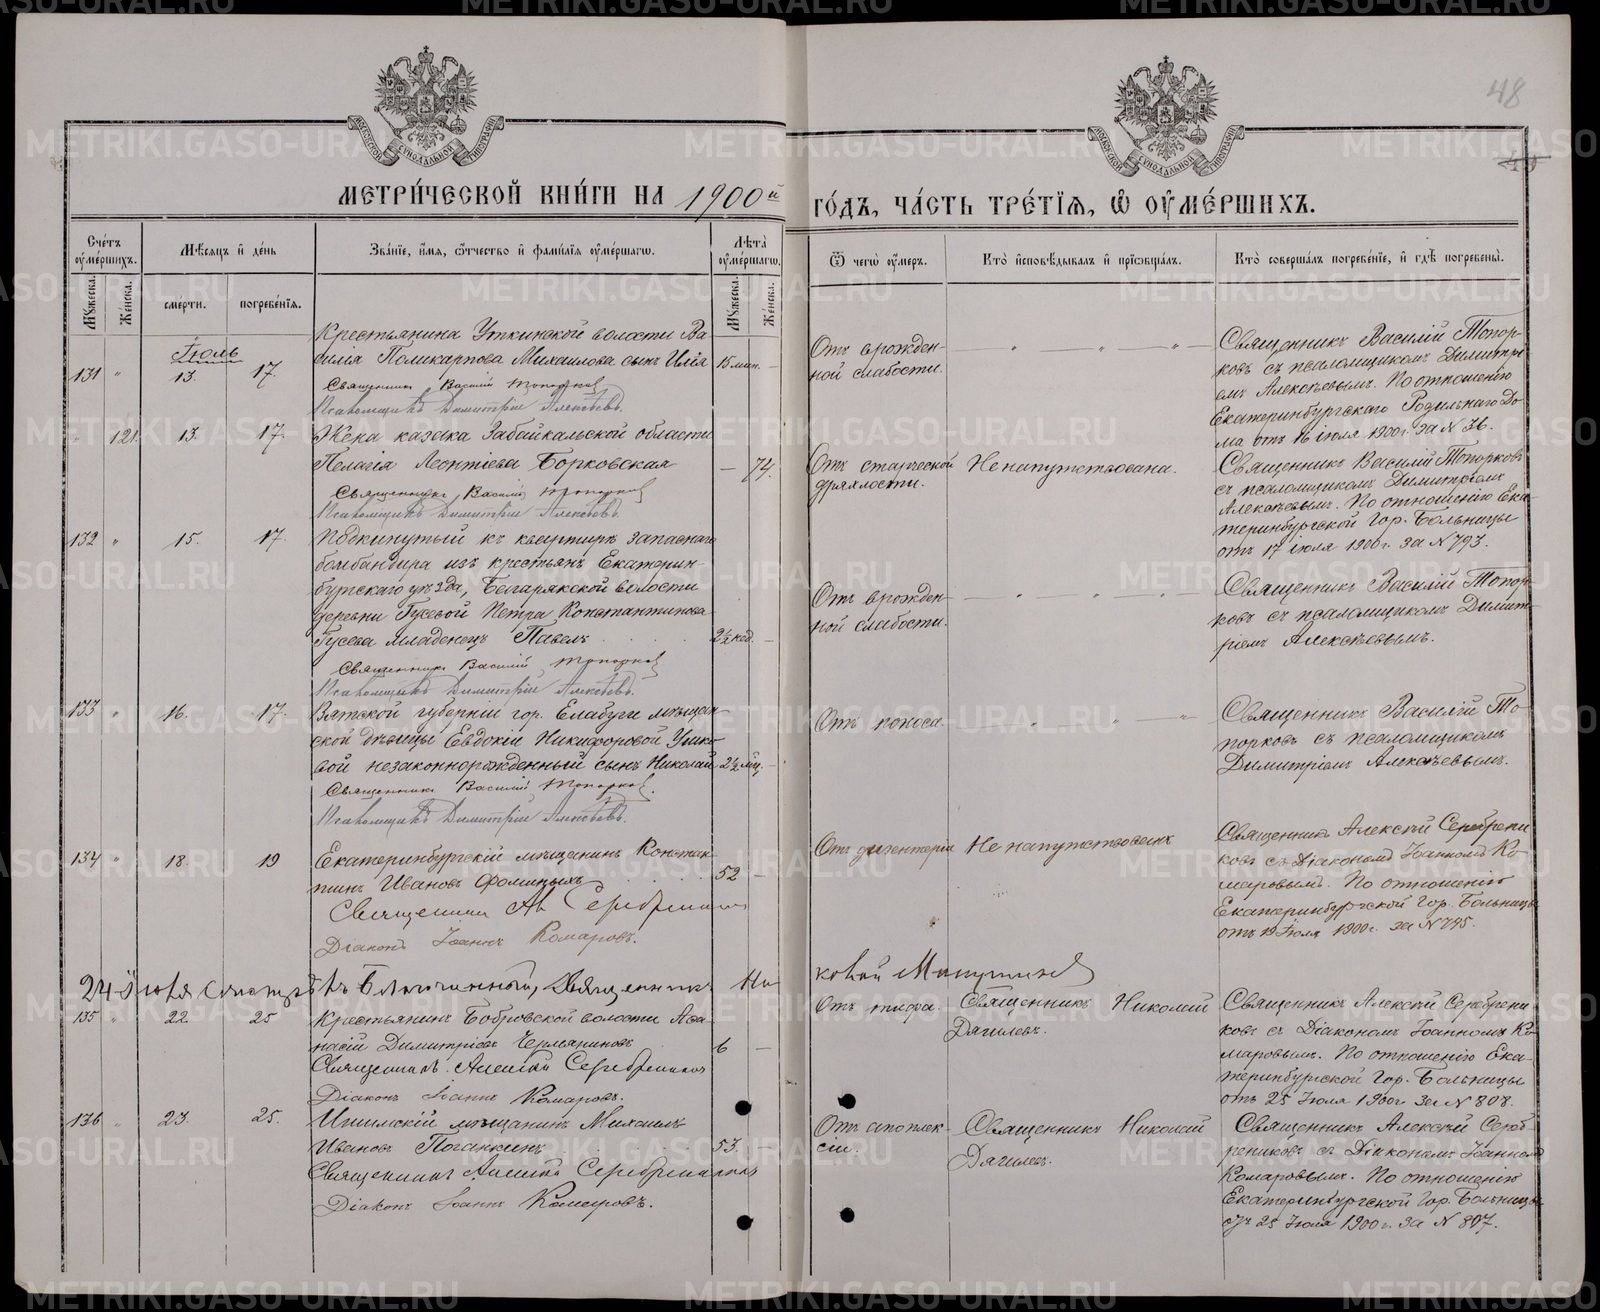 48
МЕТРИ́ЧЕСКОЙ КНИ́ГИ НА 1900й ГО́ДЪ, ЧА́СТЬ ТРЕ́ТІЯ, Ѡ ОУМЕ́РШИХЪ.
Сче́тъ оуме́ршихъ.
Мѣ́сяцъ и де́нь
Зва́ніе, и́мя, ѻ́тчество и фами́лія оуме́ршагѡ.
Лѣта̀ оуме́ршагѡ.
Ѿ чегѡ̀ оу́меръ.
Кто̀ и҆сповѣ́дывалъ и҆ прїѡбща́лъ.
Кто̀ соверша́лъ погребе́нїе, и҆ гдѣ̀ погребены̀.
Му́жеска.
Же́нска.
сме́рти.
погребе́нїя.
Му́жеска.
Же́нска.
Іюль
131 " 13. 17.
Крестьянина Уткинской волости Ва-
силія Поликарпова Михаилова сынъ Илія 15 мин. —
Священникъ Василій Топорковъ
Псаломщикъ Димитрій Алексѣевъ.
Отъ врожден-
ной слабости.
Священникъ Василій Топор-
ковъ съ псаломщикомъ Димитрі-
емъ Алексѣевымъ. По отношенію
Екатеринбургскаго Родильнаго До-
ма отъ 16 іюля 1900 г. за № 36.
" 121. 13. 17.
Жена казака Забайкальской области
Пелагія Леонтіева Борковская — 74.
Священникъ Василій Топорковъ
Псаломщикъ Димитрій Алексѣевъ.
Отъ старческой
дряхлости.
Не напутствована.
Священникъ Василій Топорковъ
съ псаломщикомъ Димитріемъ
Алексѣевымъ. По отношенію Ека-
теринбургской Гор. Больницы
отъ 17 іюля 1900 г. за № 793.
132 " 15. 17.
Подкинутый къ квартирѣ запаснаго
бомбандира изъ крестьянъ Екатерин-
бургскаго уѣзда, Багарякской волости
деревни Гусевой Петра Константинова
Гусева младенецъ Павелъ 2½ нед. —
Священникъ Василій Топорковъ
Псаломщикъ Димитрій Алексѣевъ.
Отъ врожден-
ной слабости.
Священникъ Василій Топор-
ковъ съ псаломщикомъ Димит-
ріемъ Алексѣевымъ.
133 " 16. 17.
Вятской губерніи гор. Елабуги мѣщан-
ской дѣвицы Евдокіи Никифоровой
незаконнорожденный сынъ Николай 2½ мѣс. —
Священникъ Василій Топорковъ.
Псаломщикъ Димитрій Алексѣевъ.
Отъ поноса.
Священникъ Василій То-
порковъ съ псаломщикомъ
Димитріемъ Алексѣевымъ.
134 " 18. 19
Екатеринбургскій мѣщанинъ Констан-
тинъ Ивановъ Фоминыхъ 52 —
Священникъ Ал. Серебрениковъ
Діаконъ Іоаннъ Комаровъ.
Отъ дизентеріи
Не напутствованъ
Священникъ Алексѣй Серебрени-
ковъ съ Діакономъ Іоанномъ Ко-
маровымъ. По отношенію
Екатеринбургской Гор. Больницы
отъ 19 Іюля 1900 г. за № 795.
24 Іюля смотрѣлъ Благочинный, Священникъ
135 " 22. 25
Крестьянинъ Бобровской волости Аѳа-
насій Димитріевъ 6 —
Священникъ Алексѣй Серебрениковъ
Діаконъ Іоаннъ Комаровъ.
Отъ тифа.
Священникъ Николай
Дягилевъ.
Священникъ Алексѣй Серебрени-
ковъ съ Діакономъ Іоанномъ Ко-
маровымъ. По отношенію Ека-
теринбургской Гор. Больницы
отъ 25 Іюля 1900 г. за № 808.
136 " 23. 25.
Ишимскій мѣщанинъ Михаилъ
Ивановъ Поганкинъ 53. —
Священникъ Алексѣй Серебрениковъ
Діаконъ Іоаннъ Комаровъ.
Отъ апоплек-
сіи.
Священникъ Николай
Дягилевъ.
Священникъ Алексѣй Сереб-
рениковъ съ Діакономъ Іоанномъ
Комаровымъ. По отношенію
Екатеринбургской Гор. Больницы
отъ 25 Іюля 1900 г. за № 807.
METRIKI.GASO-URAL.RU